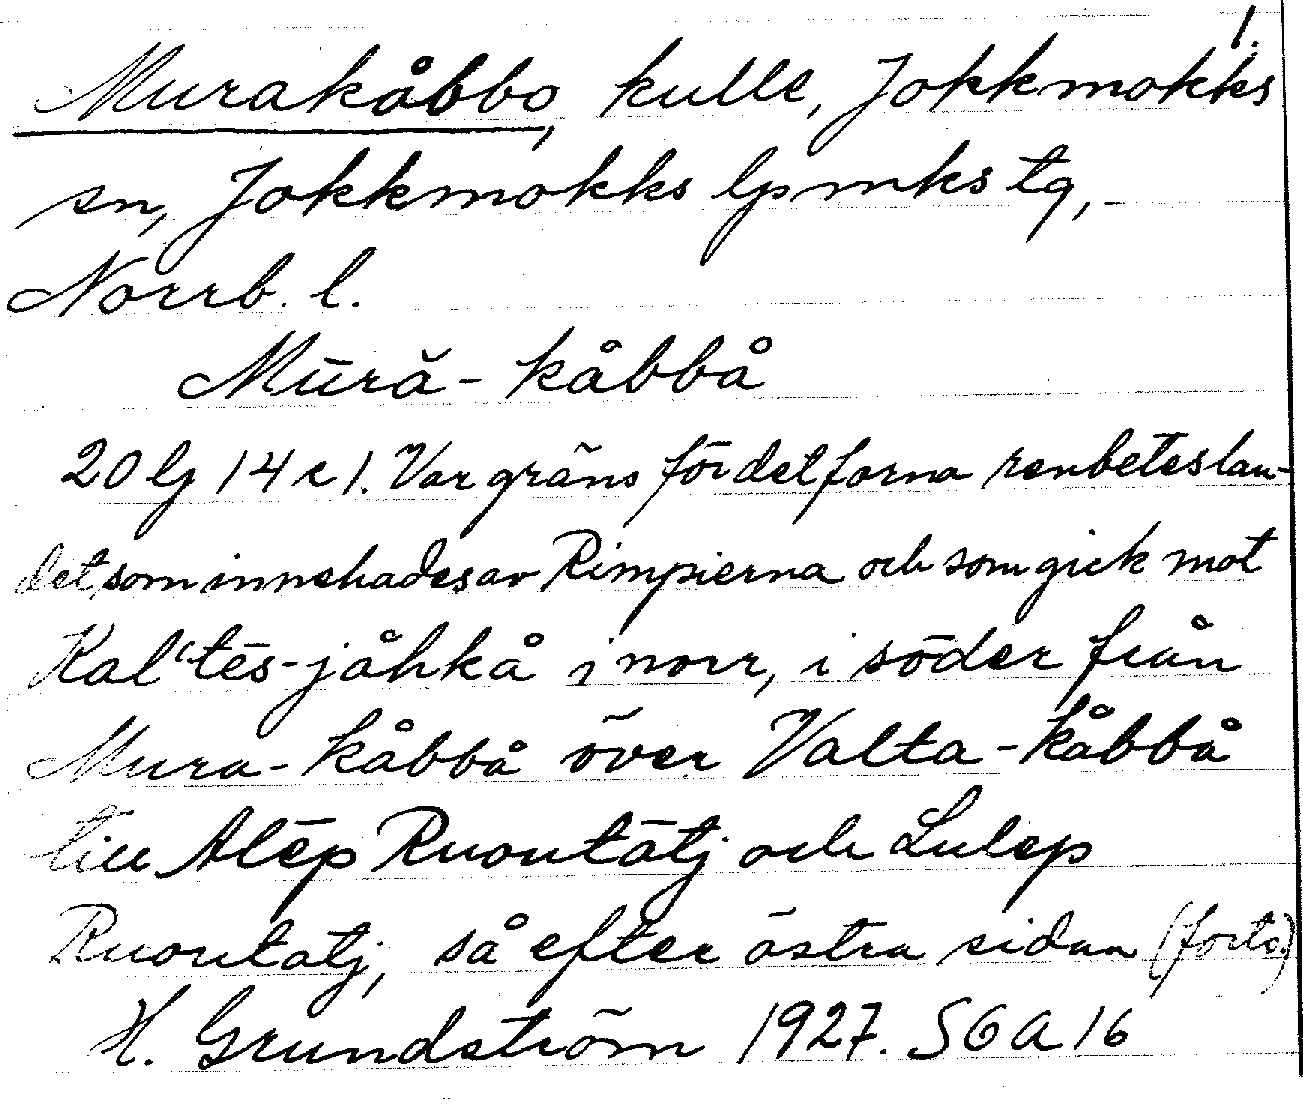 1.
Murakåbbo, kulle, Jokkmokks
sn, Jokkmokks lpmks tg,
Norrb. l.
Mūră-kåbbå
20 lj 14 c 1. Var gräns för det forna renbeteslan-
det, som innehades av Rimpierna och som gick mot
Kal'tēs-jåhkå i norr, i söder från
Mura-kåbbå över Valta-kåbbå
till Alēp Ruoutātj och Lulep
Ruoutatj, så efter östra sidan (forts)
H. Grundström 1927. SGA 16